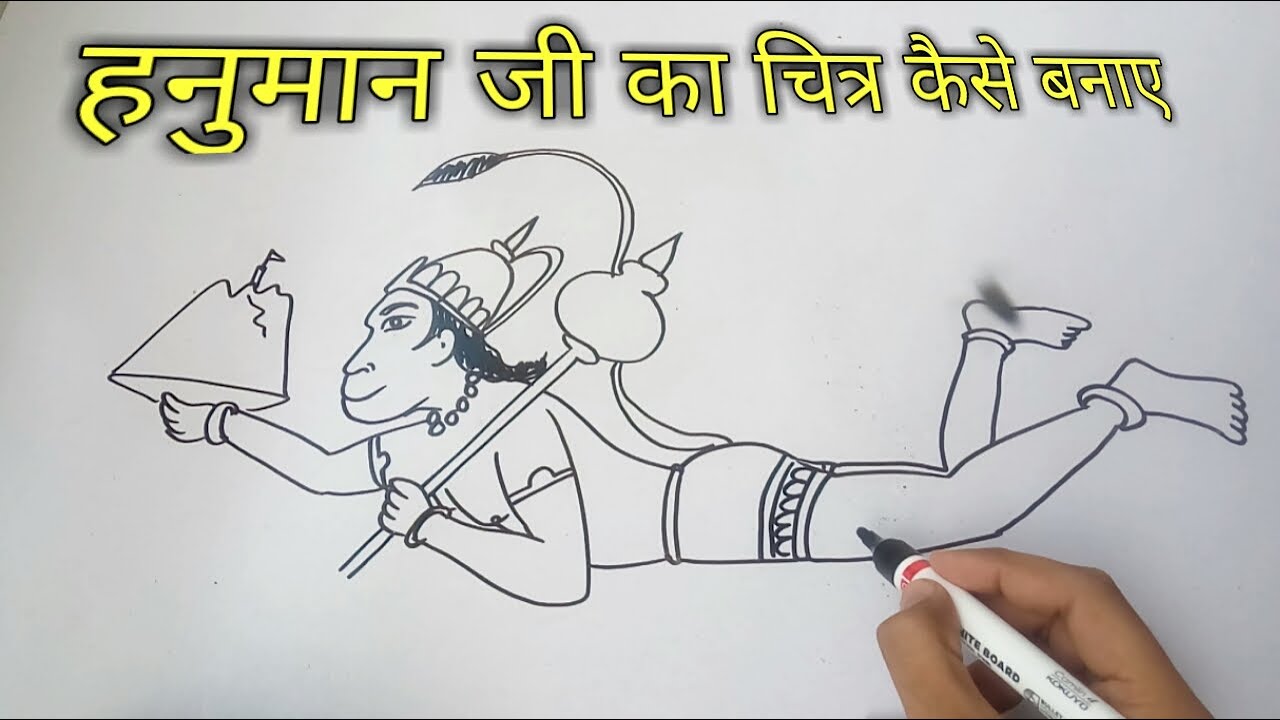 हनुमान जी का चित्र कैसे बनाए
WHITE BOARD
KOKUYO